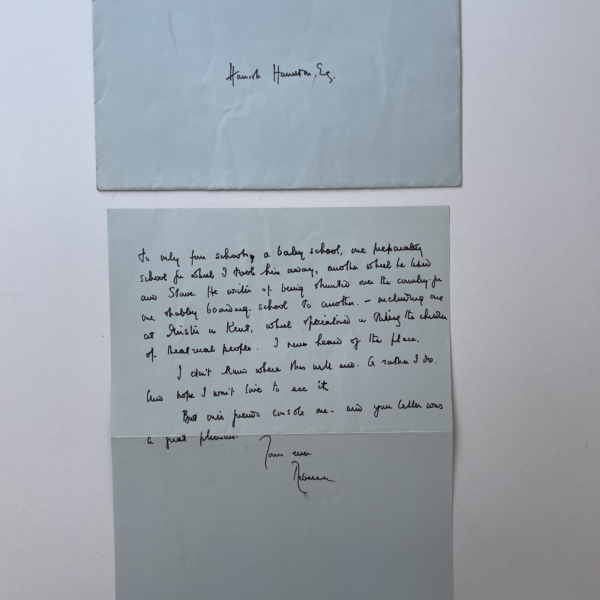 Hamish Hamilton, Esq.
to only four schools, a baby school, one preparatory
school from which I took him away, another which he liked
and Stowe. He writes of being shunted over the country from
one shabby boarding school to another. – including one
at in Kent, which specialised in taking the children
of theatrical people. I never heard of the place.
I don't know where this will end. Or rather I do.
And hope I won't live to see it.
But one's friends console one – and your letter was
a great pleasure.
Yours ever
Rebecca